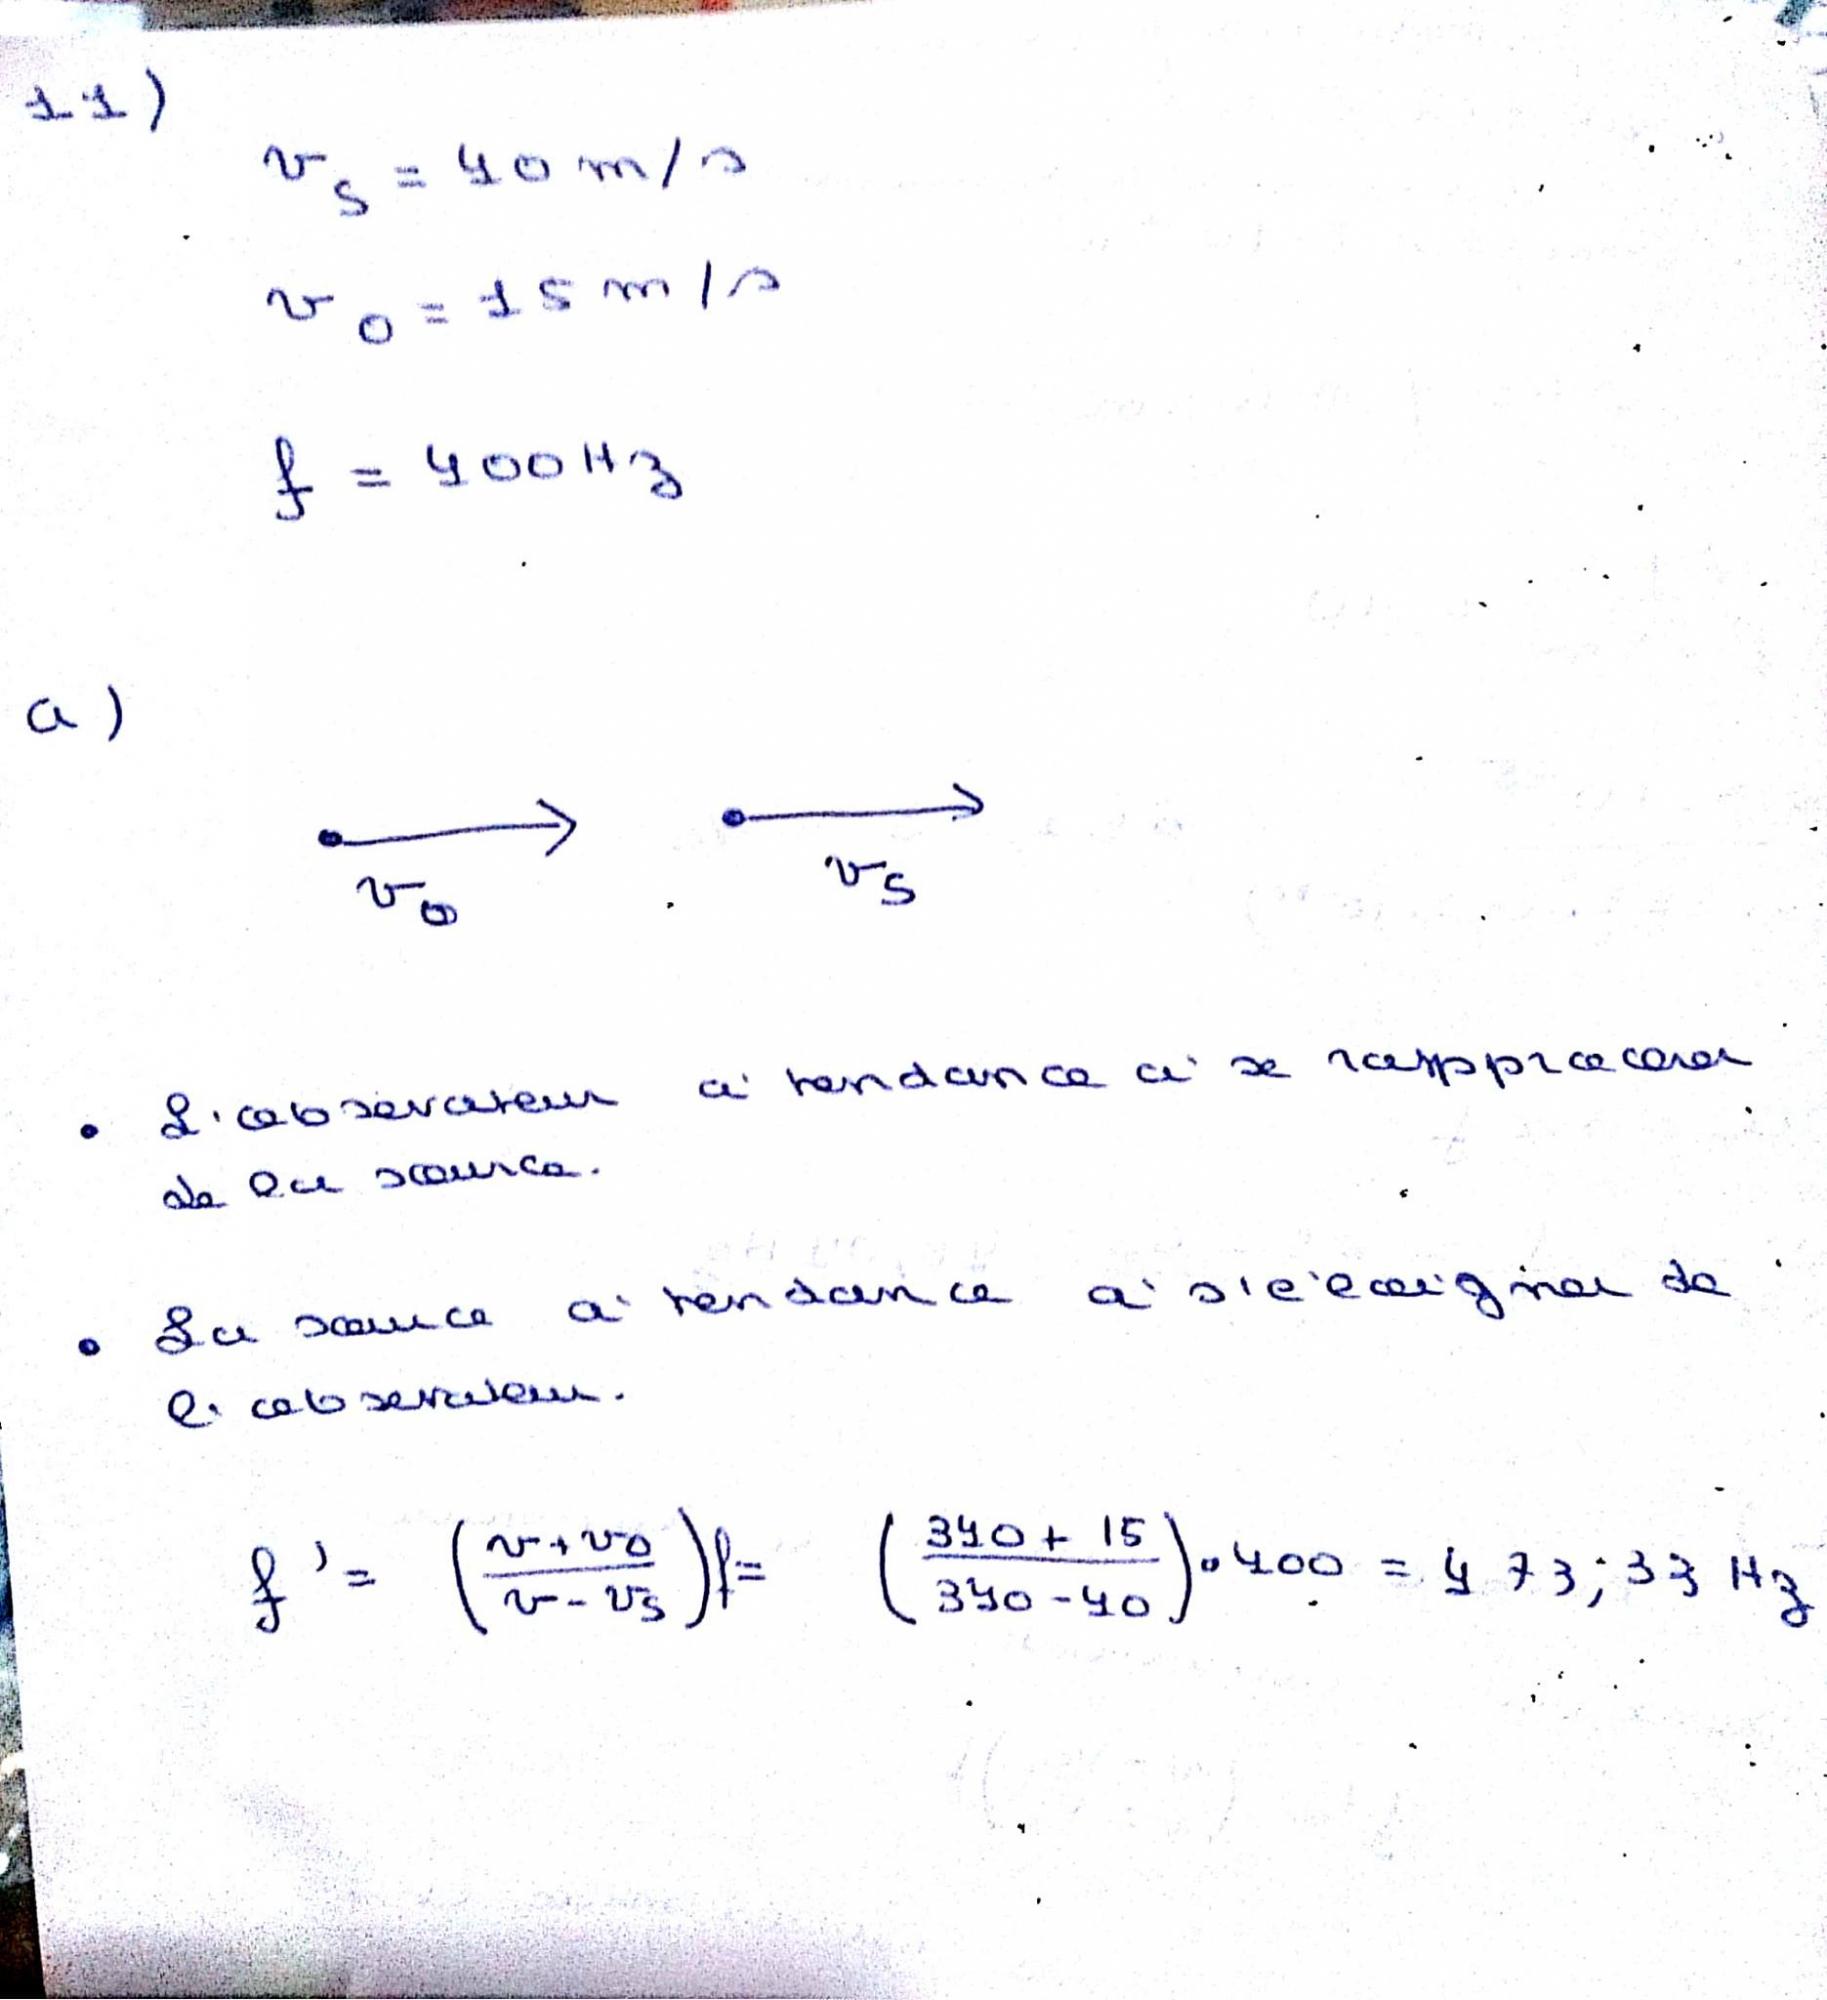 11)
v_s = 40 m/s
v_0 = 15 m/s
f = 400 Hz
a)
v_0 v_s
• L'observateur à tendance à se rapprocher
de la source.
• La source à tendance à s'éloigner de
l'observateur.
f' = (v+v_0 / v-v_s) f = (340 + 15 / 340 - 40) • 400 = 473;33 Hz